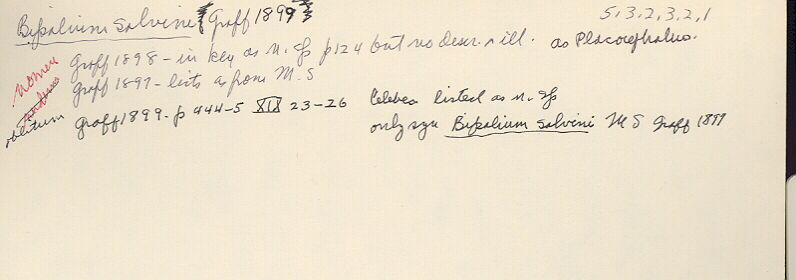 Bipalium salvini {Graff 1899} 5,3,2,3,2,1
Graff 1898 - in key as n. sp p 124 but no descr. n ill. as Placocephalus.
nomen
Graff 1897 - lists as from M.S
nudum
oblitum
Graff 1899. p 444-5 XIX 23-26 Celebes listed as n. sp
only syn Bipalium salvini MS Graff 1897